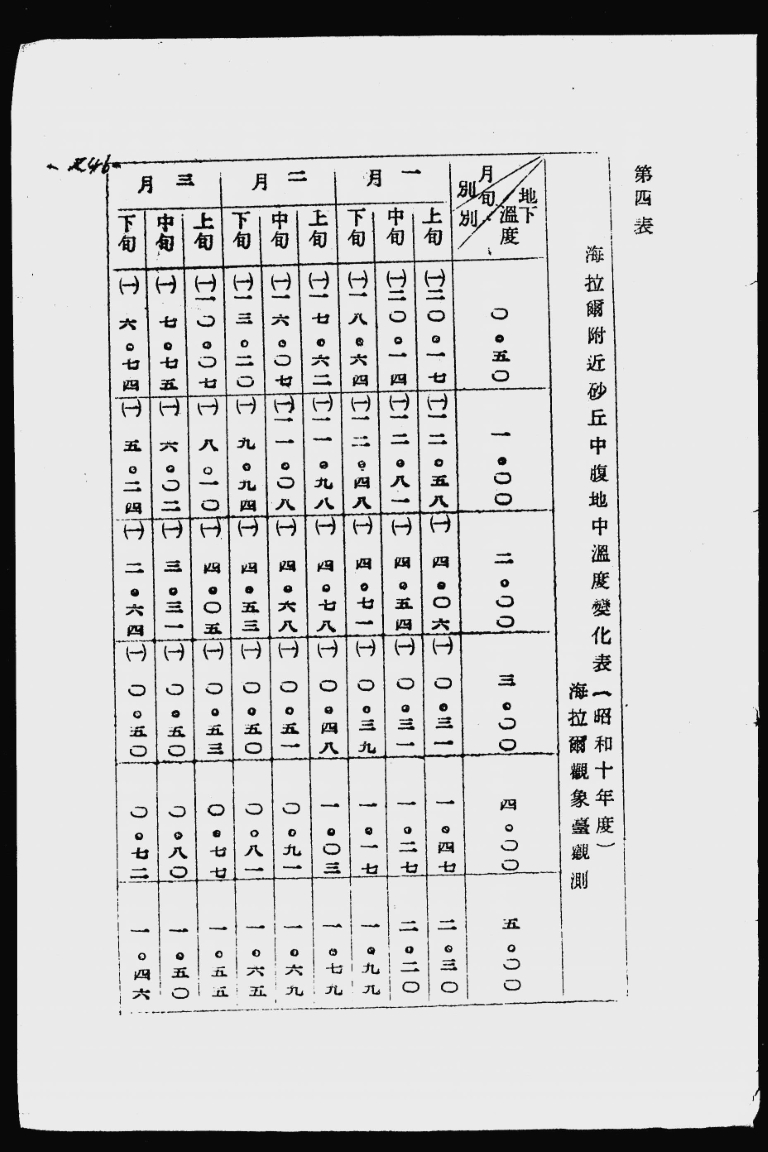 第四表
海拉爾附近砂丘中腹地中溫度變化表(昭和十年度)
海拉爾觀象臺觀測
地下溫度 月別 旬別 〇・五〇 一・〇〇 二・〇〇 三・〇〇 四・〇〇 五・〇〇
一月
上旬 (一)二〇・一七 (一)一二・五八 (一)四・〇六 (一)〇・三一 一・四七 二・三〇
中旬 (一)二〇・一四 (一)一二・八一 (一)四・五四 (一)〇・三一 一・二七 二・二〇
下旬 (一)一八・六四 (一)一二・四八 (一)四・七一 (一)〇・三九 一・一七 一・九九
二月
上旬 (一)一七・六二 (一)一一・九八 (一)四・七八 (一)〇・四八 一・〇三 一・七九
中旬 (一)一六・〇七 (一)一一・〇八 (一)四・六八 (一)〇・五一 〇・九一 一・六九
下旬 (一)一三・二〇 (一)九・九四 (一)四・五三 (一)〇・五〇 〇・八一 一・六五
三月
上旬 (一)一〇・〇七 (一)八・一〇 (一)四・〇五 (一)〇・五三 〇・七七 一・五五
中旬 (一)七・七五 (一)六・〇二 (一)三・三一 (一)〇・五〇 〇・八〇 一・五〇
下旬 (一)六・七四 (一)五・二四 (一)二・六四 (一)〇・五〇 〇・七二 一・四六
-246-